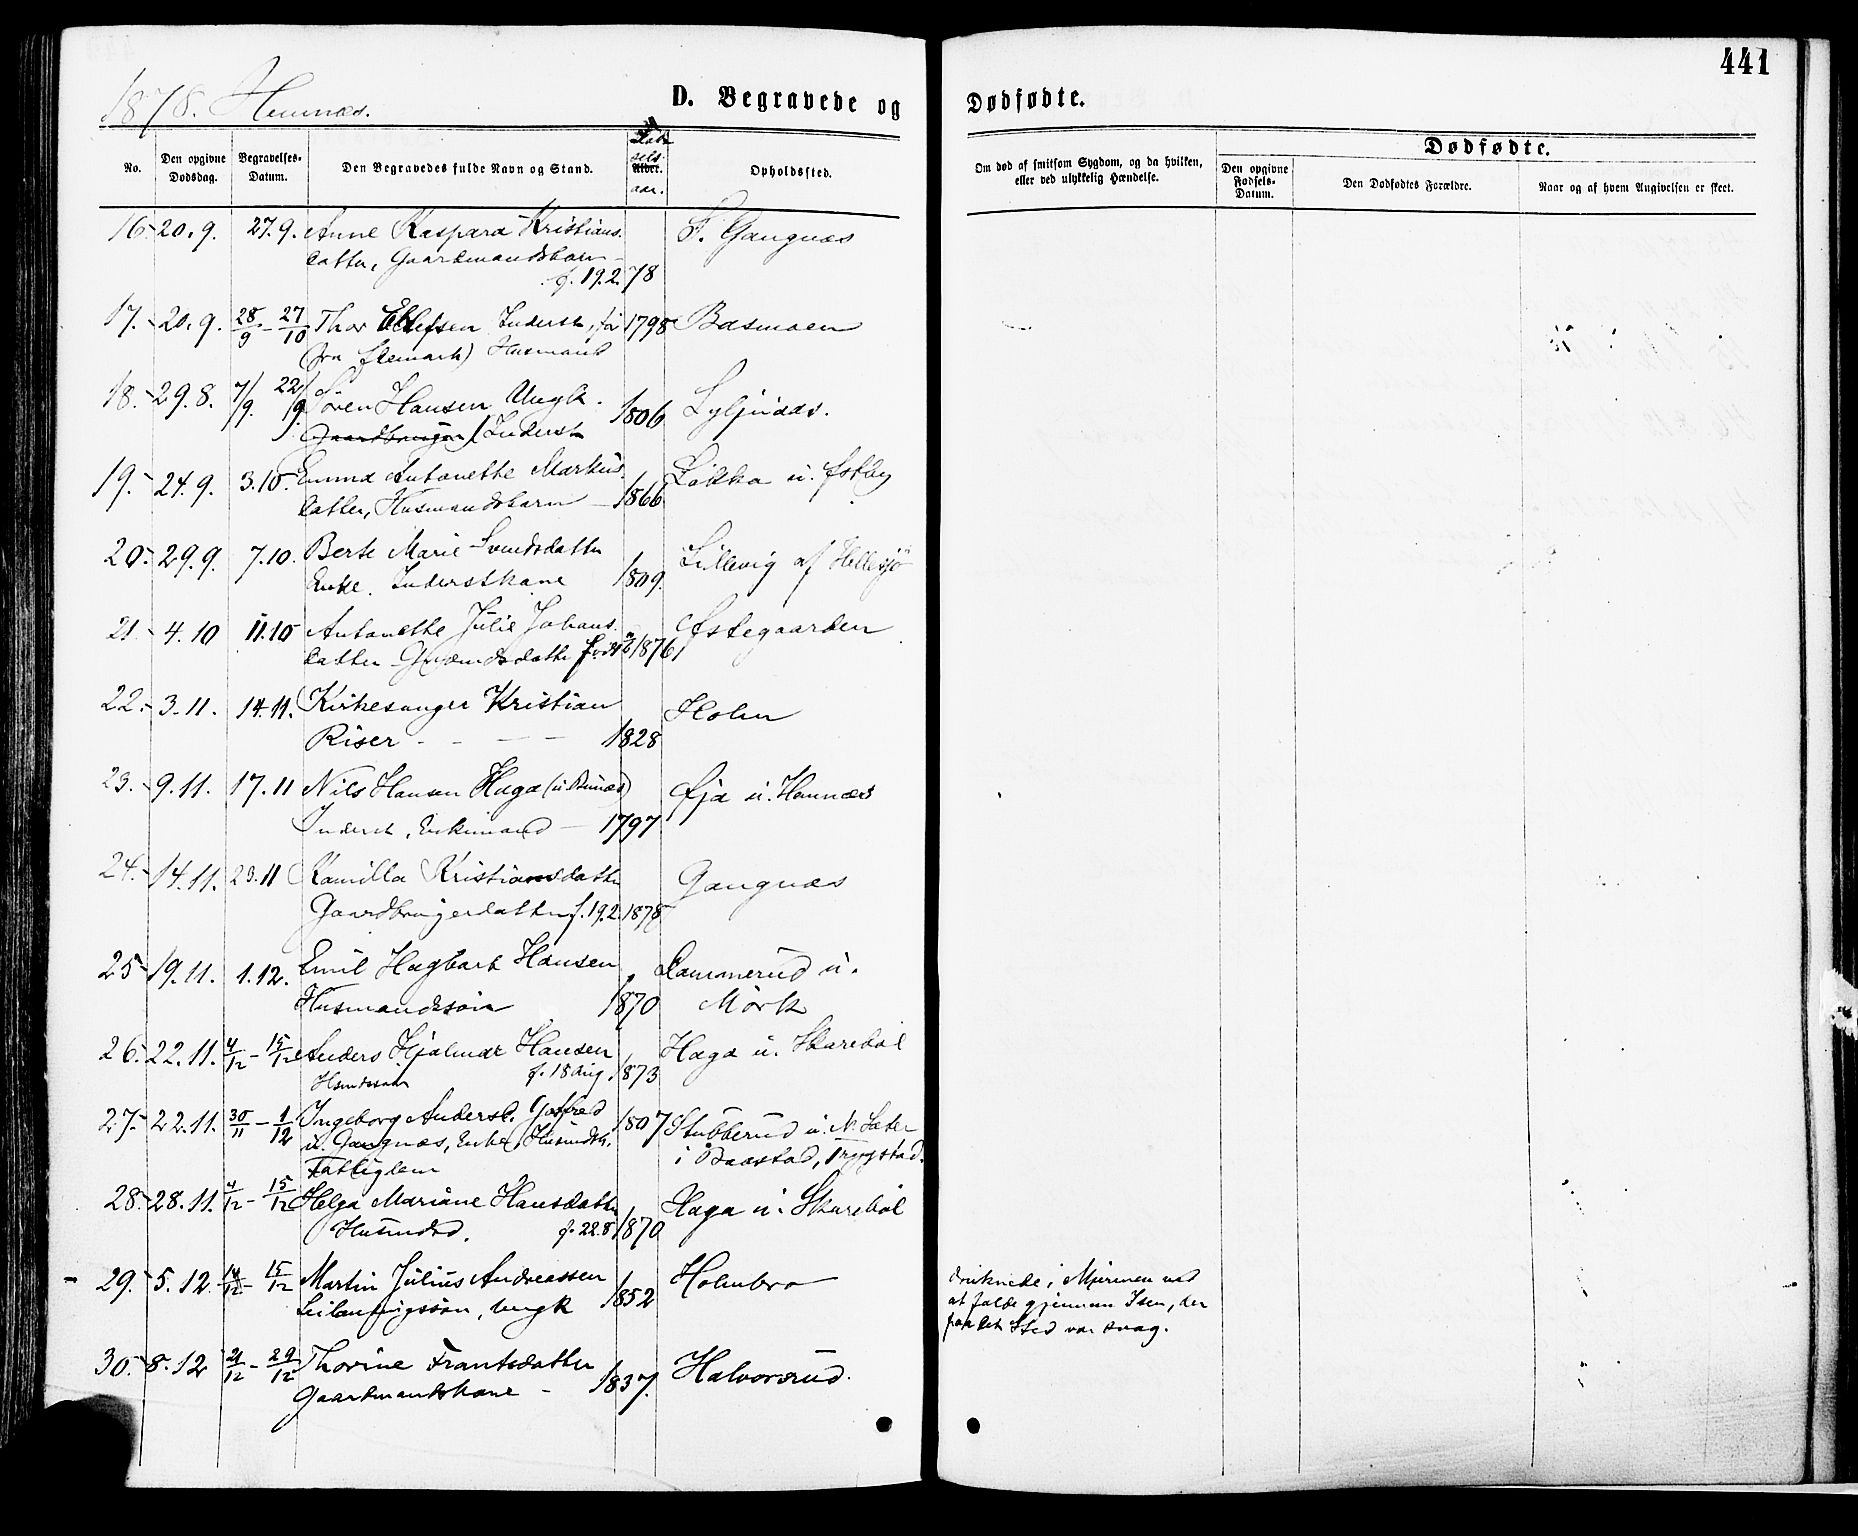 441
1878. Hemnæs.
D. Begravede og Dødfødte.
No.
Den opgivne Dødsdag.
Begravelses-Datum.
Den Begravedes fulde Navn og Stand.
Fødselsaar.
Alder.
Opholdssted.
Om død af smitsom Sygdom, og da hvilken, eller ved ulykkelig Hændelse.
Dødfødte.
Den opgivne Fødsels-Datum.
Den Dødfødtes Forældre.
Naar og af hvem Angivelsen er skeet.
16. 20.9. 27.9. Anne Kaspara Kristians- F. Gangnæs
datter, Gaardmandsbarn
f. 19.2.78
17. 20.9. 28/9 - 27/10 Thor Ellefsen Inderst, før 1798 Basmoen
(fra ) Husmand
18. 29.8. 7/9. 22/9. Søren Hansen Ungk. 1806
Gaardbruger / Inderst
19. 24.9. 3.10. Emma Antonette Markus- Løkka u. Østby
datter, Husmandsbarn 1866
20. 29.9. 7.10. Berte Marie Svendsdatter Lillevig af Hellesjø
Enke. Inderstkone 1809.
21. 4.10 11.10 Antonette Julie Johans- Østegaarden
datter Gmandsdatter født 1876
22. 3.11. 14.11. Kirkesanger Kristian Holm
Riser 1828
23. 9.11. 17.11 Nils Hansen Haga Øja u. Hemnæs
Inderst, Enkemand 1797
24. 14.11. 23.11 Kamilla Kristiansdatter Gangnæs
Gaardbrugerdatter f. 19.2.1878
25 19.11. 1.12. Emil Hagbart Hansen Dammerud u.
Husmandssøn 1870 Mørk
26. 22.11. 4/12 - 15/12 Anders Hjalmar Hansen Haga u. Skarebøl
Hsmdssøn f. 18 Aug. 1873
27. 22.11. 30/11 - 1/12 Ingeborg Andersd. 1807 Stubberud u. N. Sæter
u. Gangnæs, Enke, Husmdsk. i Baastad, Trygstad.
Fattiglem
28. 28.11. 4/12 - 15/12 Helga Mariane Hansdatter Haga u. Skarebøl
Husmdsd. f. 22.8 1870
29. 5.12 14/12 - 15/12 Martin Julius Andreassen Holmbro druknede i Mjermen ved
Leilændingssøn, Ungk 1852 at falde gjennem Isen, der
paa det Sted var svag.
30. 8.12 21/12 - 29/12 Thorine Frantsdatter Halvorsrud.
Gaardmandskone 1837.